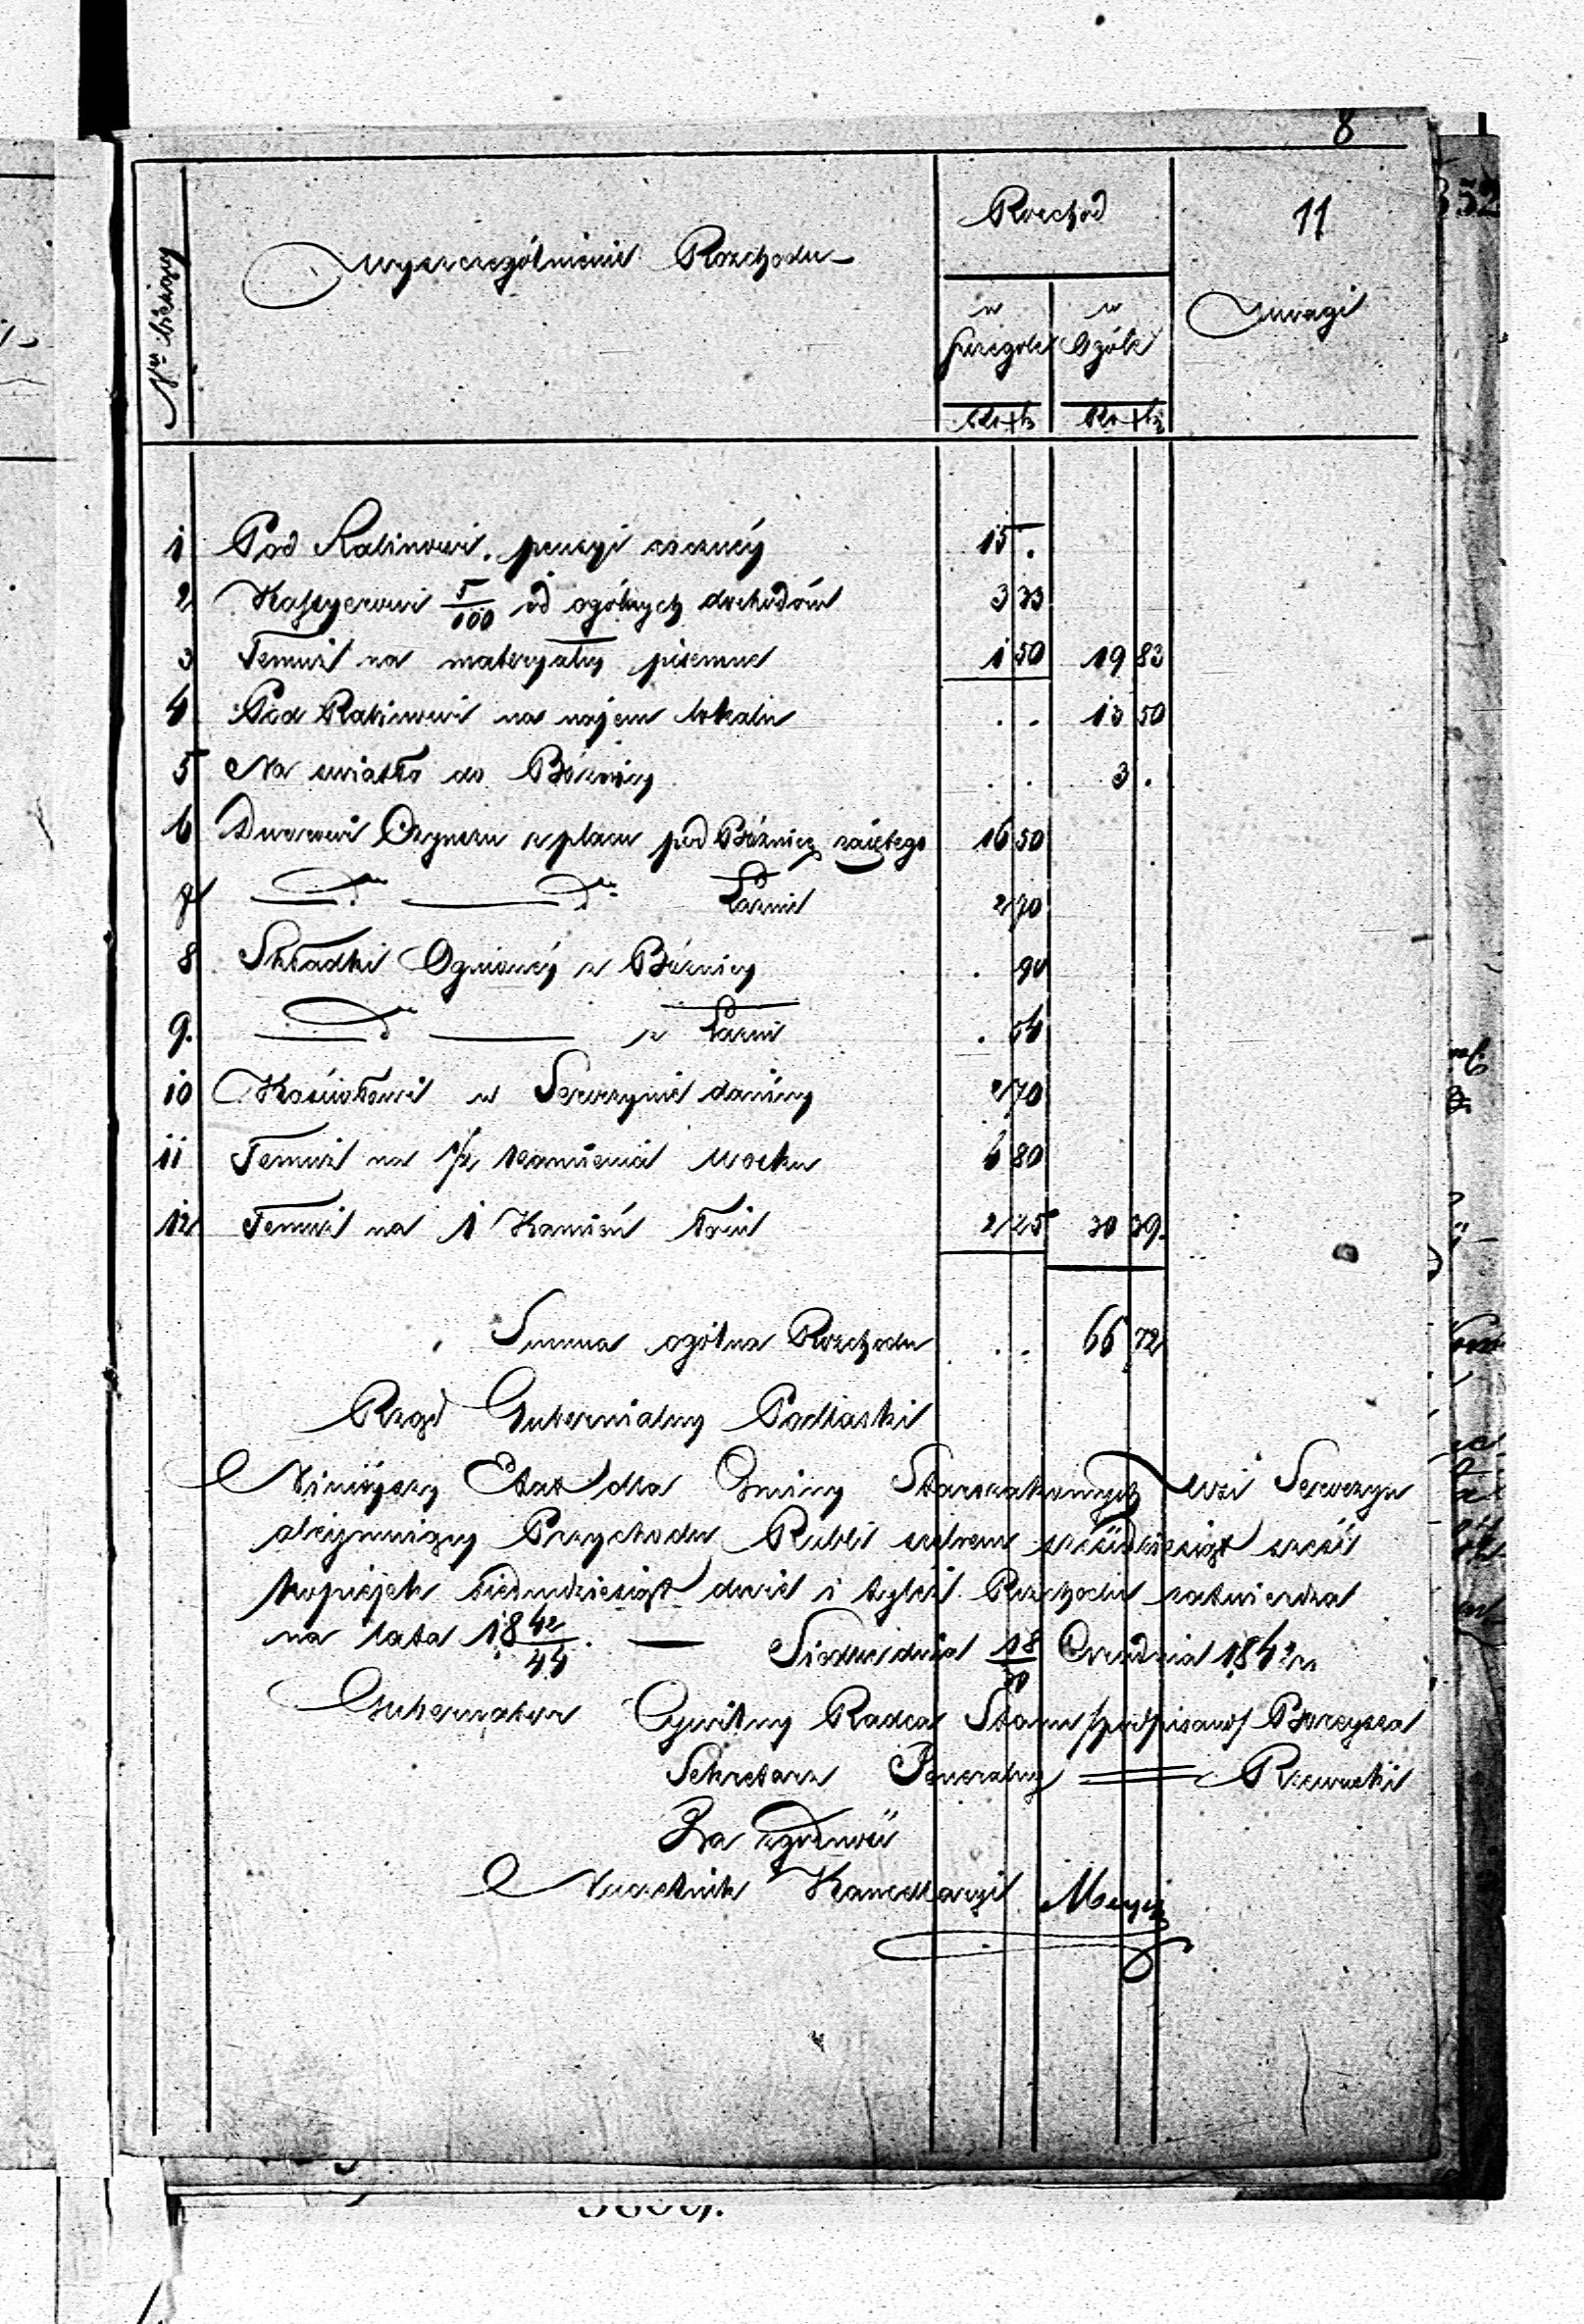 8
Nr bieżący
Wyszczególnienie Rozchodu
Rozchod
11
w szczególe
w Ogóle
Uwagi
Rs kp Rs kp
1 Pod Rabinowi pensyi roczney 15 .
2 Kassyerowi 5/100 od ogólnych dochodów 3 33
3 Temuż na materyały pisemne 1 50 19 83
4 Pod Rabinowi na najem lokalu . . 13 50
5 Na swiatło do Bóżnicy . . 3 .
6 Dworowi Czynszu z placu pod Bóżnicę zajętego 16 50
7 Dto Dto Łaźnie 2 70
8 Składki Ogniowéy z Bóżnicy . 90
9. Dto z Łaźni . 54
10 Kościołowi w Serczynie daniny 2 70
11 Temuż na 1/2 kamienia wosku 6 80
12 Temuż na 1 Kamień Łoiu 2 25 30 39.
Summa ogólna Rozchodu . . 66 72
Rząd Gubernialny Podlaski
Ninieyszy Etat dla Gminy Starozakonnych wsi
obeymuiący Przychodu Rubli srebrem sześćdziesiąt sześć
kopiejek siedmdziesiąt dwie i tyleż Rozchodu zatwierdza
na lata 18 42/44. — Siedlce dnia 18/30 Grudnia 1842 r.
Gubernator Cywilny Radca Stanu /podpisano/
Sekretarz Generalny = Rzewuski
Za zgodność
Naczelnik Kancellaryi
352